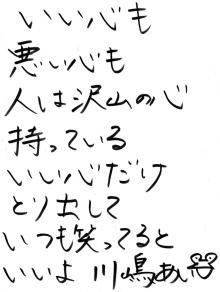 いい心も
悪い心も
人は沢山の心
持っている
いい心だけ
とり出して
いつも笑ってると
いいよ 川嶋あい